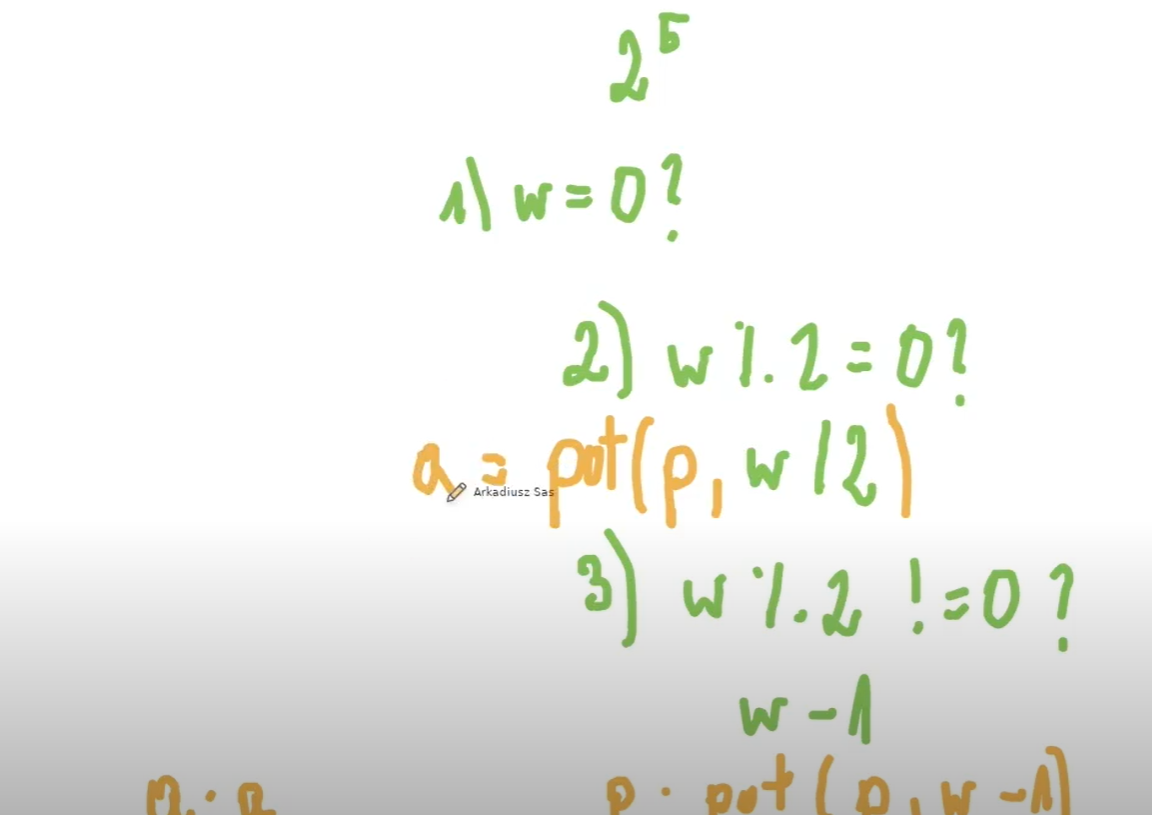 2⁵
1) w = 0?
2) w % 2 = 0?
a = pot(p, w / 2)
Arkadiusz Sas
3) w % 2 != 0?
w - 1
a · a p · pot(p, w - 1)